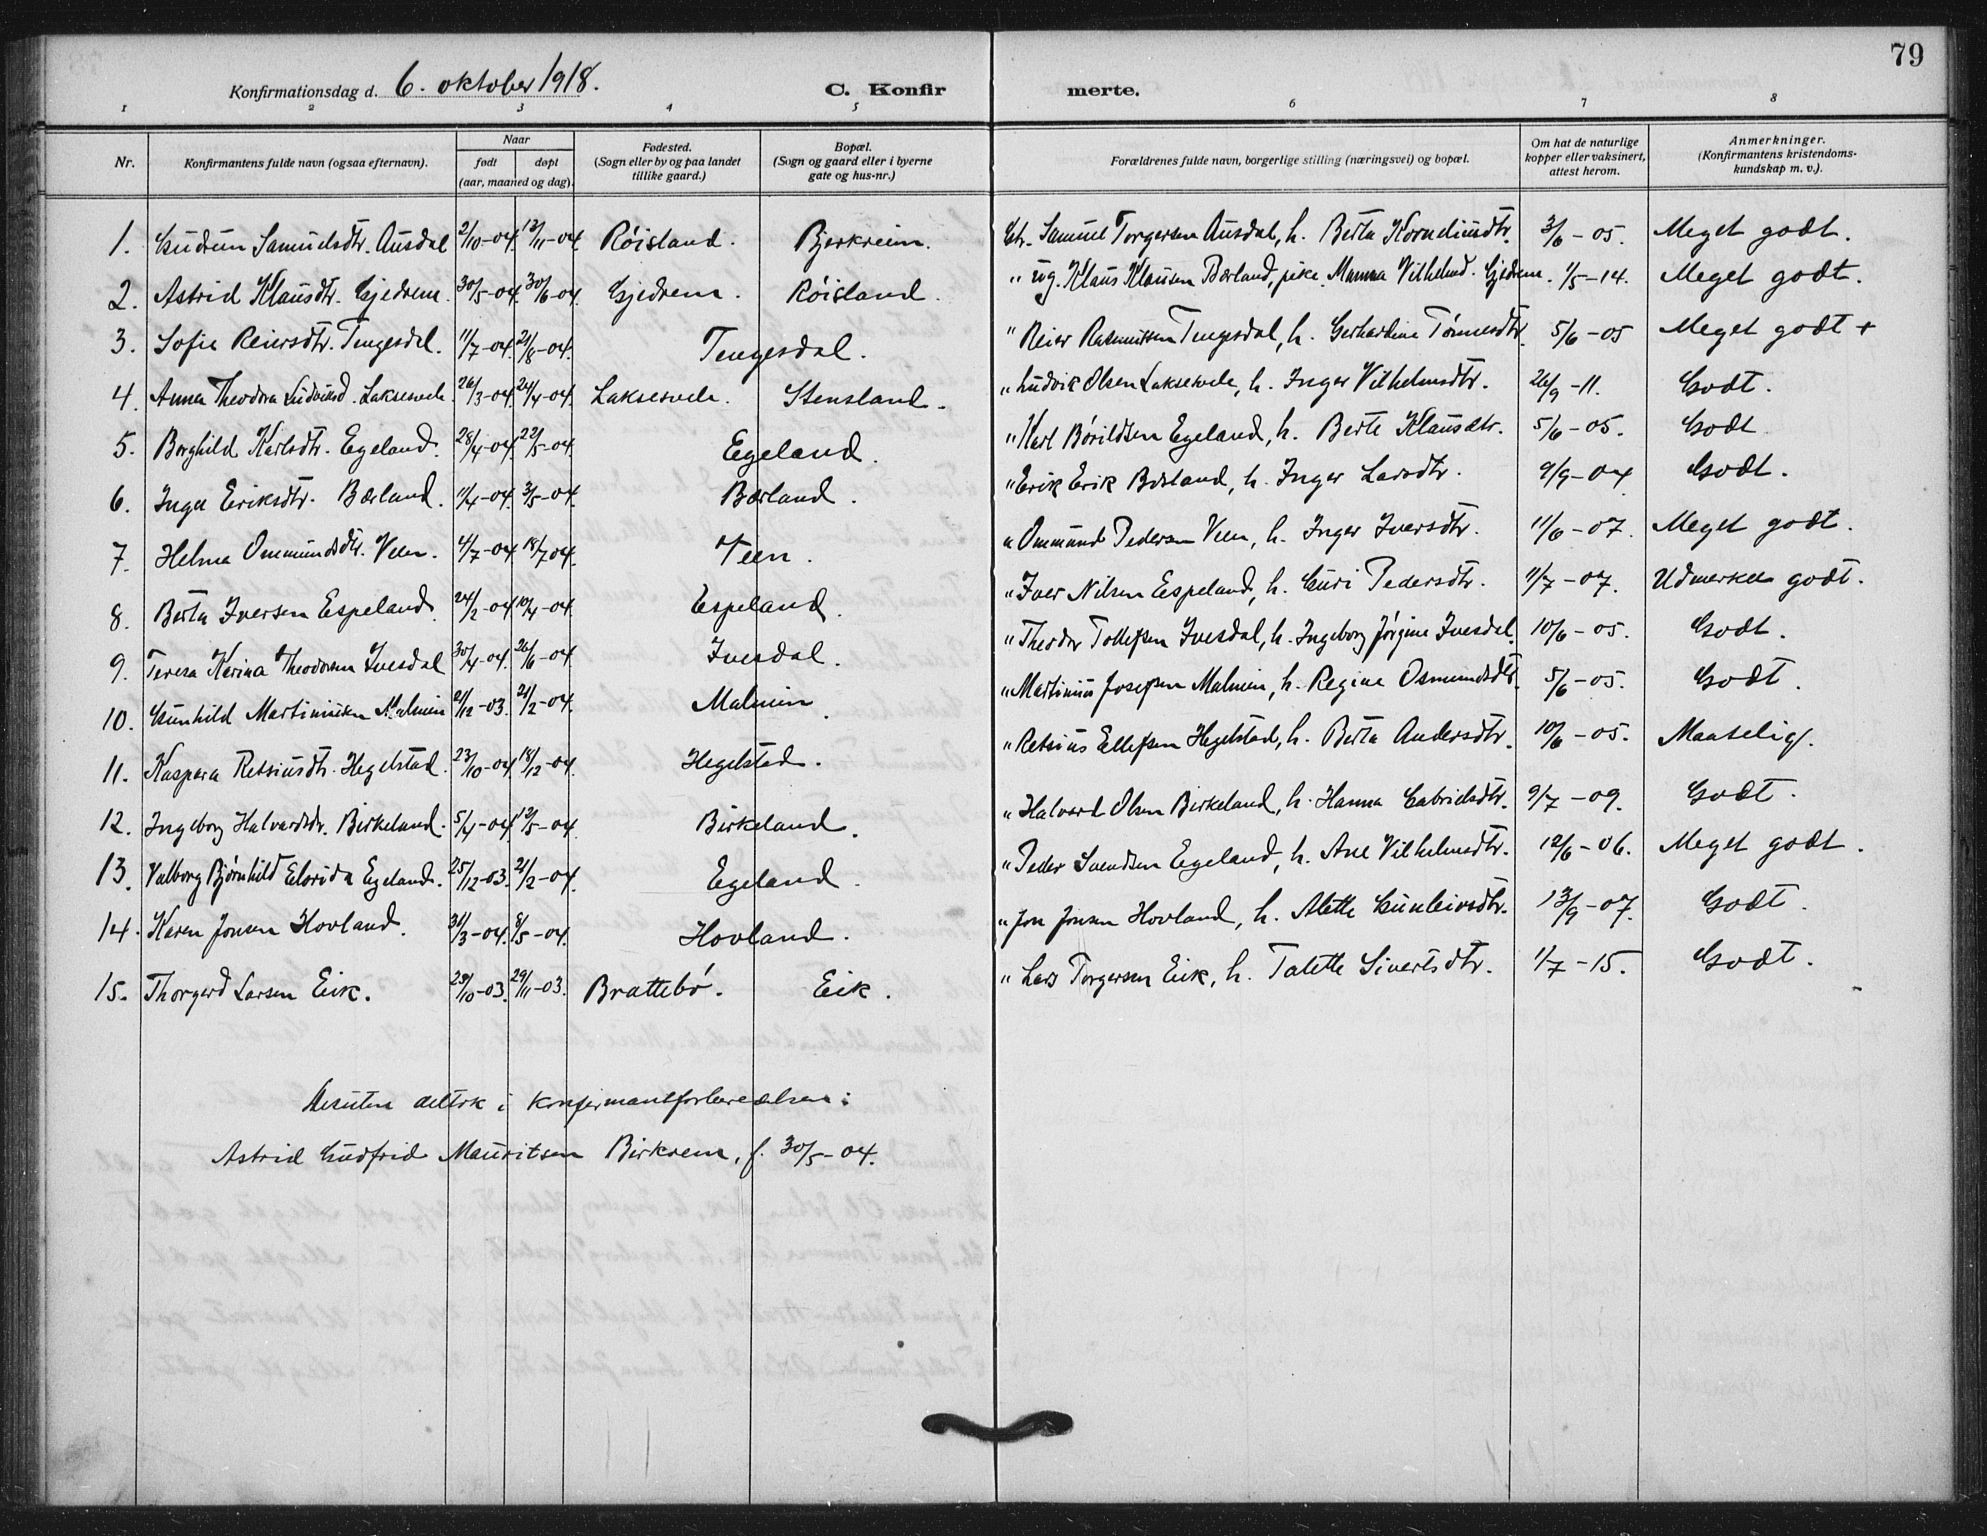 79
Konfirmationsdag d. 6. oktober 1918. C. Konfirmerte.
1 2 3 4 5 6 7 8
Nr. Konfirmantens fulde navn (ogsaa efternavn). Naar født døpt (aar, maaned og dag). Fødested. (Sogn eller by og paa landet tillike gaard.) Bopæl. (Sogn og gaard eller i byerne gate og hus-nr.) Forældrenes fulde navn, borgerlige stilling (næringsvei) og bopæl. Om hat de naturlige kopper eller vaksinert, attest herom. Anmerkninger. (Konfirmantens kristendomskundskap m. v.).
1. Gudrun Samuelsdtr. Ausdal 2/10-04. 13/11-04. Røisland. Bjerkreim. Gbr. Samuel Torgersen Ausdal, h. Berta Korneliusdtr. 3/6-05. Meget godt.
2. Astrid Klausdtr. Gjedrem. 30/5-04. 30/6-04. Gjedrem. Røisland. " ug. Klaus Klausen Bærland, pike Mamma Vilhelmd. Gjedrem. 1/5-14. Meget godt.
3. Sofie Reiersdtr. Tengesdal. 11/7-04. 21/8-04. Tengesdal. " Reier Rasmussen Tengesdal, h. Gerhardine Tønnesdtr. 5/6-05 Meget godt +
4. Anna Theodora Ludviksd. Laksesvele 26/3-04. 24/4-04. Laksesvele. Stensland. " Ludvik Olsen Laksesvele, h. Inger Vilhelmsdtr. 26/9-11. Godt.
5. Borghild Karlsdtr. Egeland. 28/4-04. 22/5-04. Egeland. " Karl Børildsen Egeland, h. Berte Klausdtr. 5/6-05. Godt
6. Inga Eriksdtr. Bærland. 11/4-04. 3/5-04. Bærland. " Erik Erik Bærland, h. Inger Larsdtr. 9/9-04 Godt.
7. Helma Ommundsdtr. Veen. 4/7-04. 18/7 04. Veen. " Ommund Pedersen Veen, h. Inger Iversdtr. 11/6-07. Meget godt.
8. Berta Iversen Espeland. 24/2-04. 10/4-04. Espeland. " Iver Nilsen Espeland, h. Guri Pedersdtr. 11/7-07. Udmerket godt.
9. Teresa Karina Theodorsen Ivesdal 30/4-04. 26/6-04. Ivesdal. " Theodor Tollefsen Ivesdal, h. Ingeborg Jørgine Ivesdal. 10/6-05. Godt.
10. Gunhild Martiniusen Malmin 21/12-03. 21/2-04. Malmin. " Martinius Josefsen Malmin, h. Regine Osmundsdtr. 5/6-05. Godt.
11. Kaspara Retsiusdtr. Hegelstad. 23/10-04. 18/12-04. Hegelstad. " Retsius Ellefsen Hegelstad, h. Berta Andersdtr. 10/6-05. Maatelig.
12. Ingeborg Halvardsdr. Birkeland. 5/4-04. 12/5-04. Birkeland. " Halvard Olsen Birkeland, h. Hanna Gabrielsdtr. 9/7-09. Godt.
13. Valborg Bjørnhild Elvrida Egeland. 25/12-03. 21/2-04. Egeland. " Peder Svendsen Egeland, h. Ane Vilhelmsdtr. 12/6-06. Meget godt.
14. Karen Jonsen Hovland. 31/3-04. 8/5-04. Hovland. " Jon Jonsen Hovland, h. Alette Gunleivsdtr. 13/9-07. Godt.
15. Thorgerd Larsen Eik. 29/10-03. 29/11-03. Brattebø. Eik. " Lars Torgersen Eik, h. Talette Sivertsdtr. 1/7-15. Godt.
Desuten deltok i konfirmantforberedelsen:
Astrid Gudfrid Mauritsen Birkrem, f. 30/5-04.